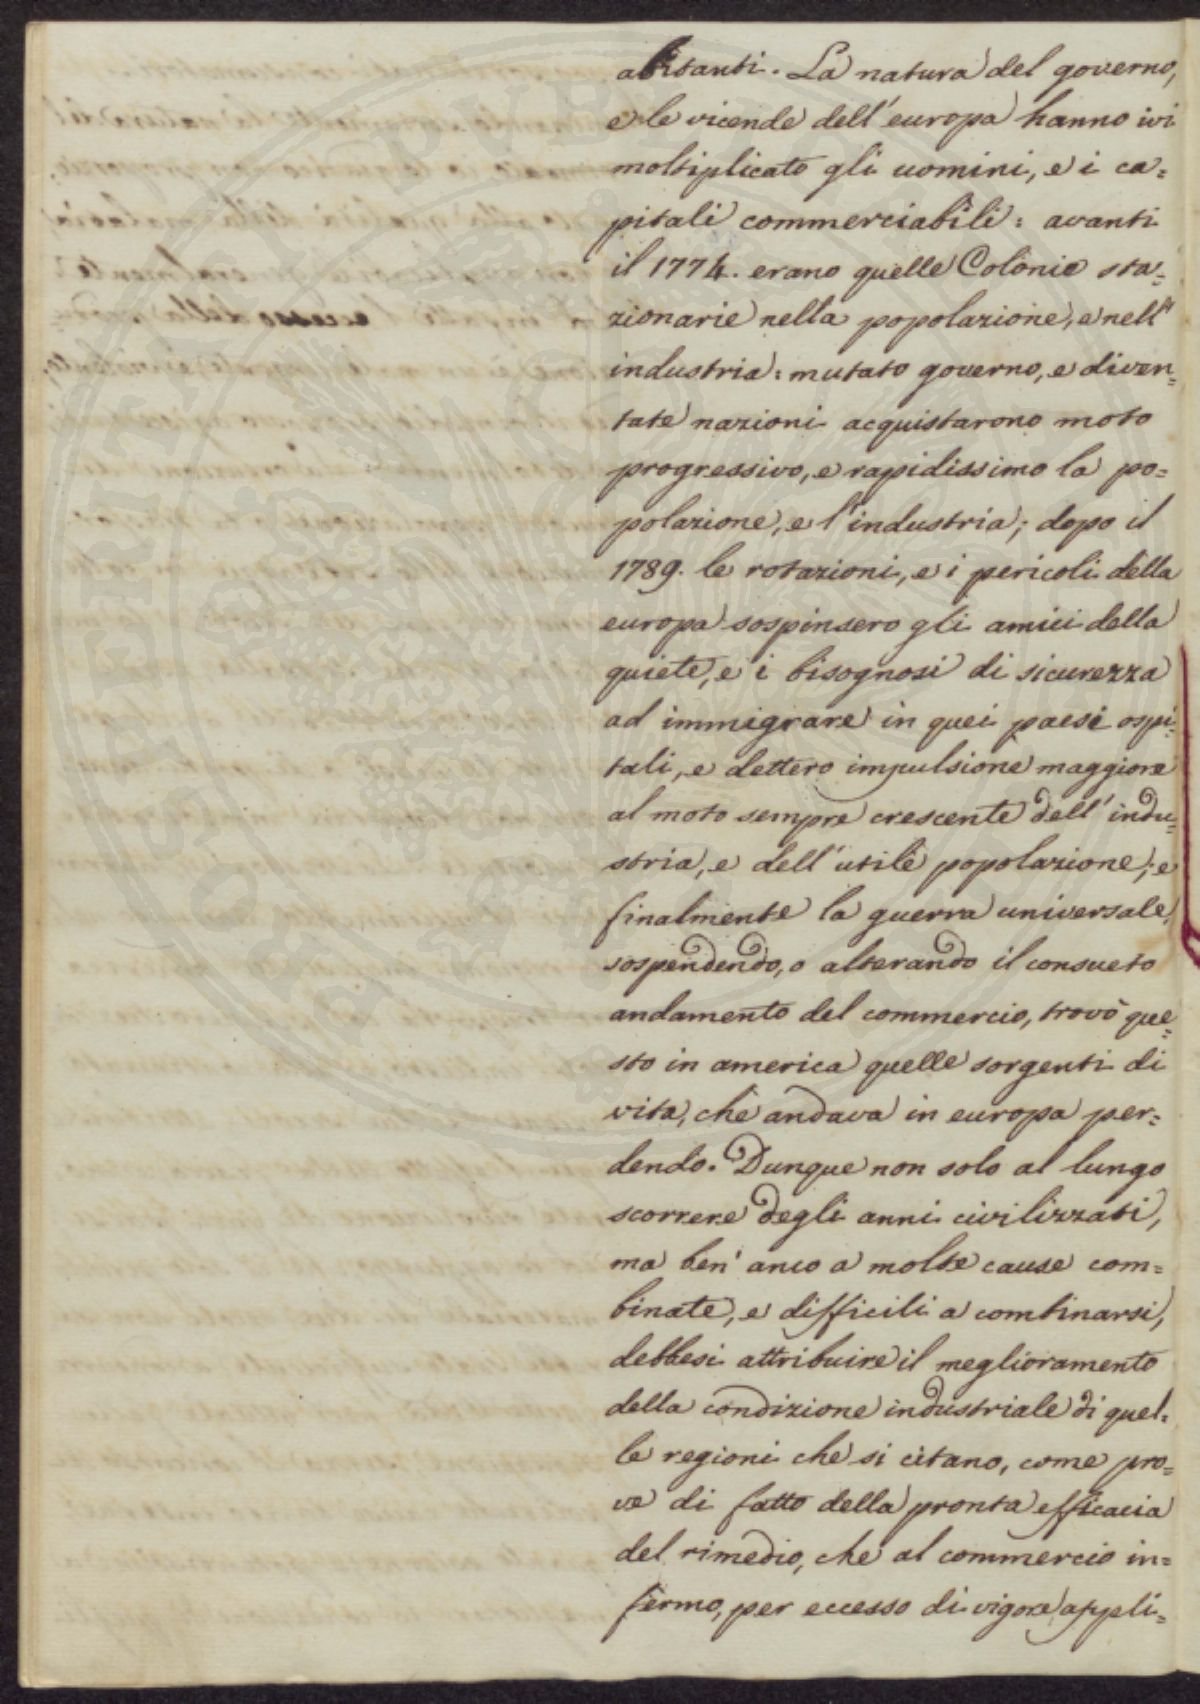 abitanti. La natura del governo,
e le vicende dell'europa hanno ivi
moltiplicato gli uomini, e i ca=
pitali commerciabili: avanti
il 1774. erano quelle Colonie sta=
zionarie nella popolazione, e nell'
industria: mutato governo, e diven=
tate nazioni acquistarono moto
progressivo, e rapidissimo la po=
polazione, e l'industria; dopo il
1789. le rotazioni, e i pericoli della
europa sospinsero gli amici della
quiete, e i bisognosi di sicurezza
ad immigrare in quei paesi ospi=
tali, e dettero impulsione maggiore
al moto sempre crescente dell'indu=
stria, e dell'utile popolazione; e
finalmente la guerra universale,
sospendendo, o alterando il consueto
andamento del commercio, trovò que=
sto in america quelle sorgenti di
vita, che andava in europa per=
dendo. Dunque non solo al lungo
scorrere degli anni civilizzati,
ma ben' anco a molte cause com=
binate, e difficili a combinarsi,
debbesi attribuire il meglioramento
della condizione industriale di quel=
le regioni che si citano, come pro=
ve di fatto della pronta efficacia
del rimedio, che al commercio in=
fermo, per eccesso di vigore appli=